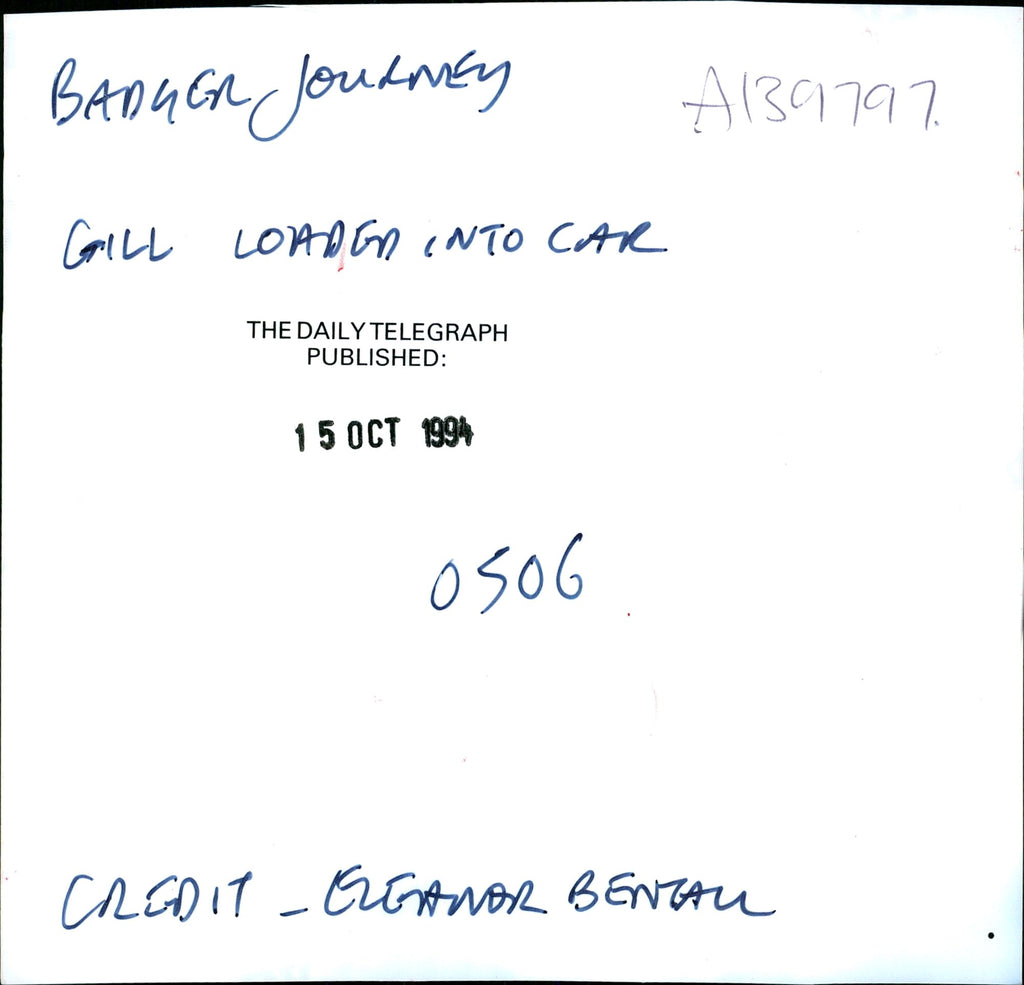 BADGER JOURNEY
A139797.
GILL LOADED INTO CAR
THE DAILY TELEGRAPH
PUBLISHED:
15 OCT 1994
0506
CREDIT - ELEANOR BENTALL